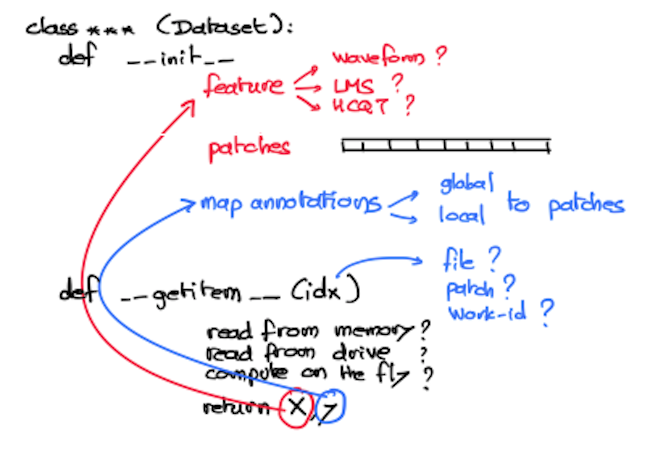 class *** (Dataset):
def __init__
waveform ?
feature
LMS ?
HCQT ?
patches
map annotations
global
local
to patches
def __getitem__ (idx)
file ?
patch ?
work-id ?
read from memory ?
read from drive ?
compute on the fly ?
return X, y